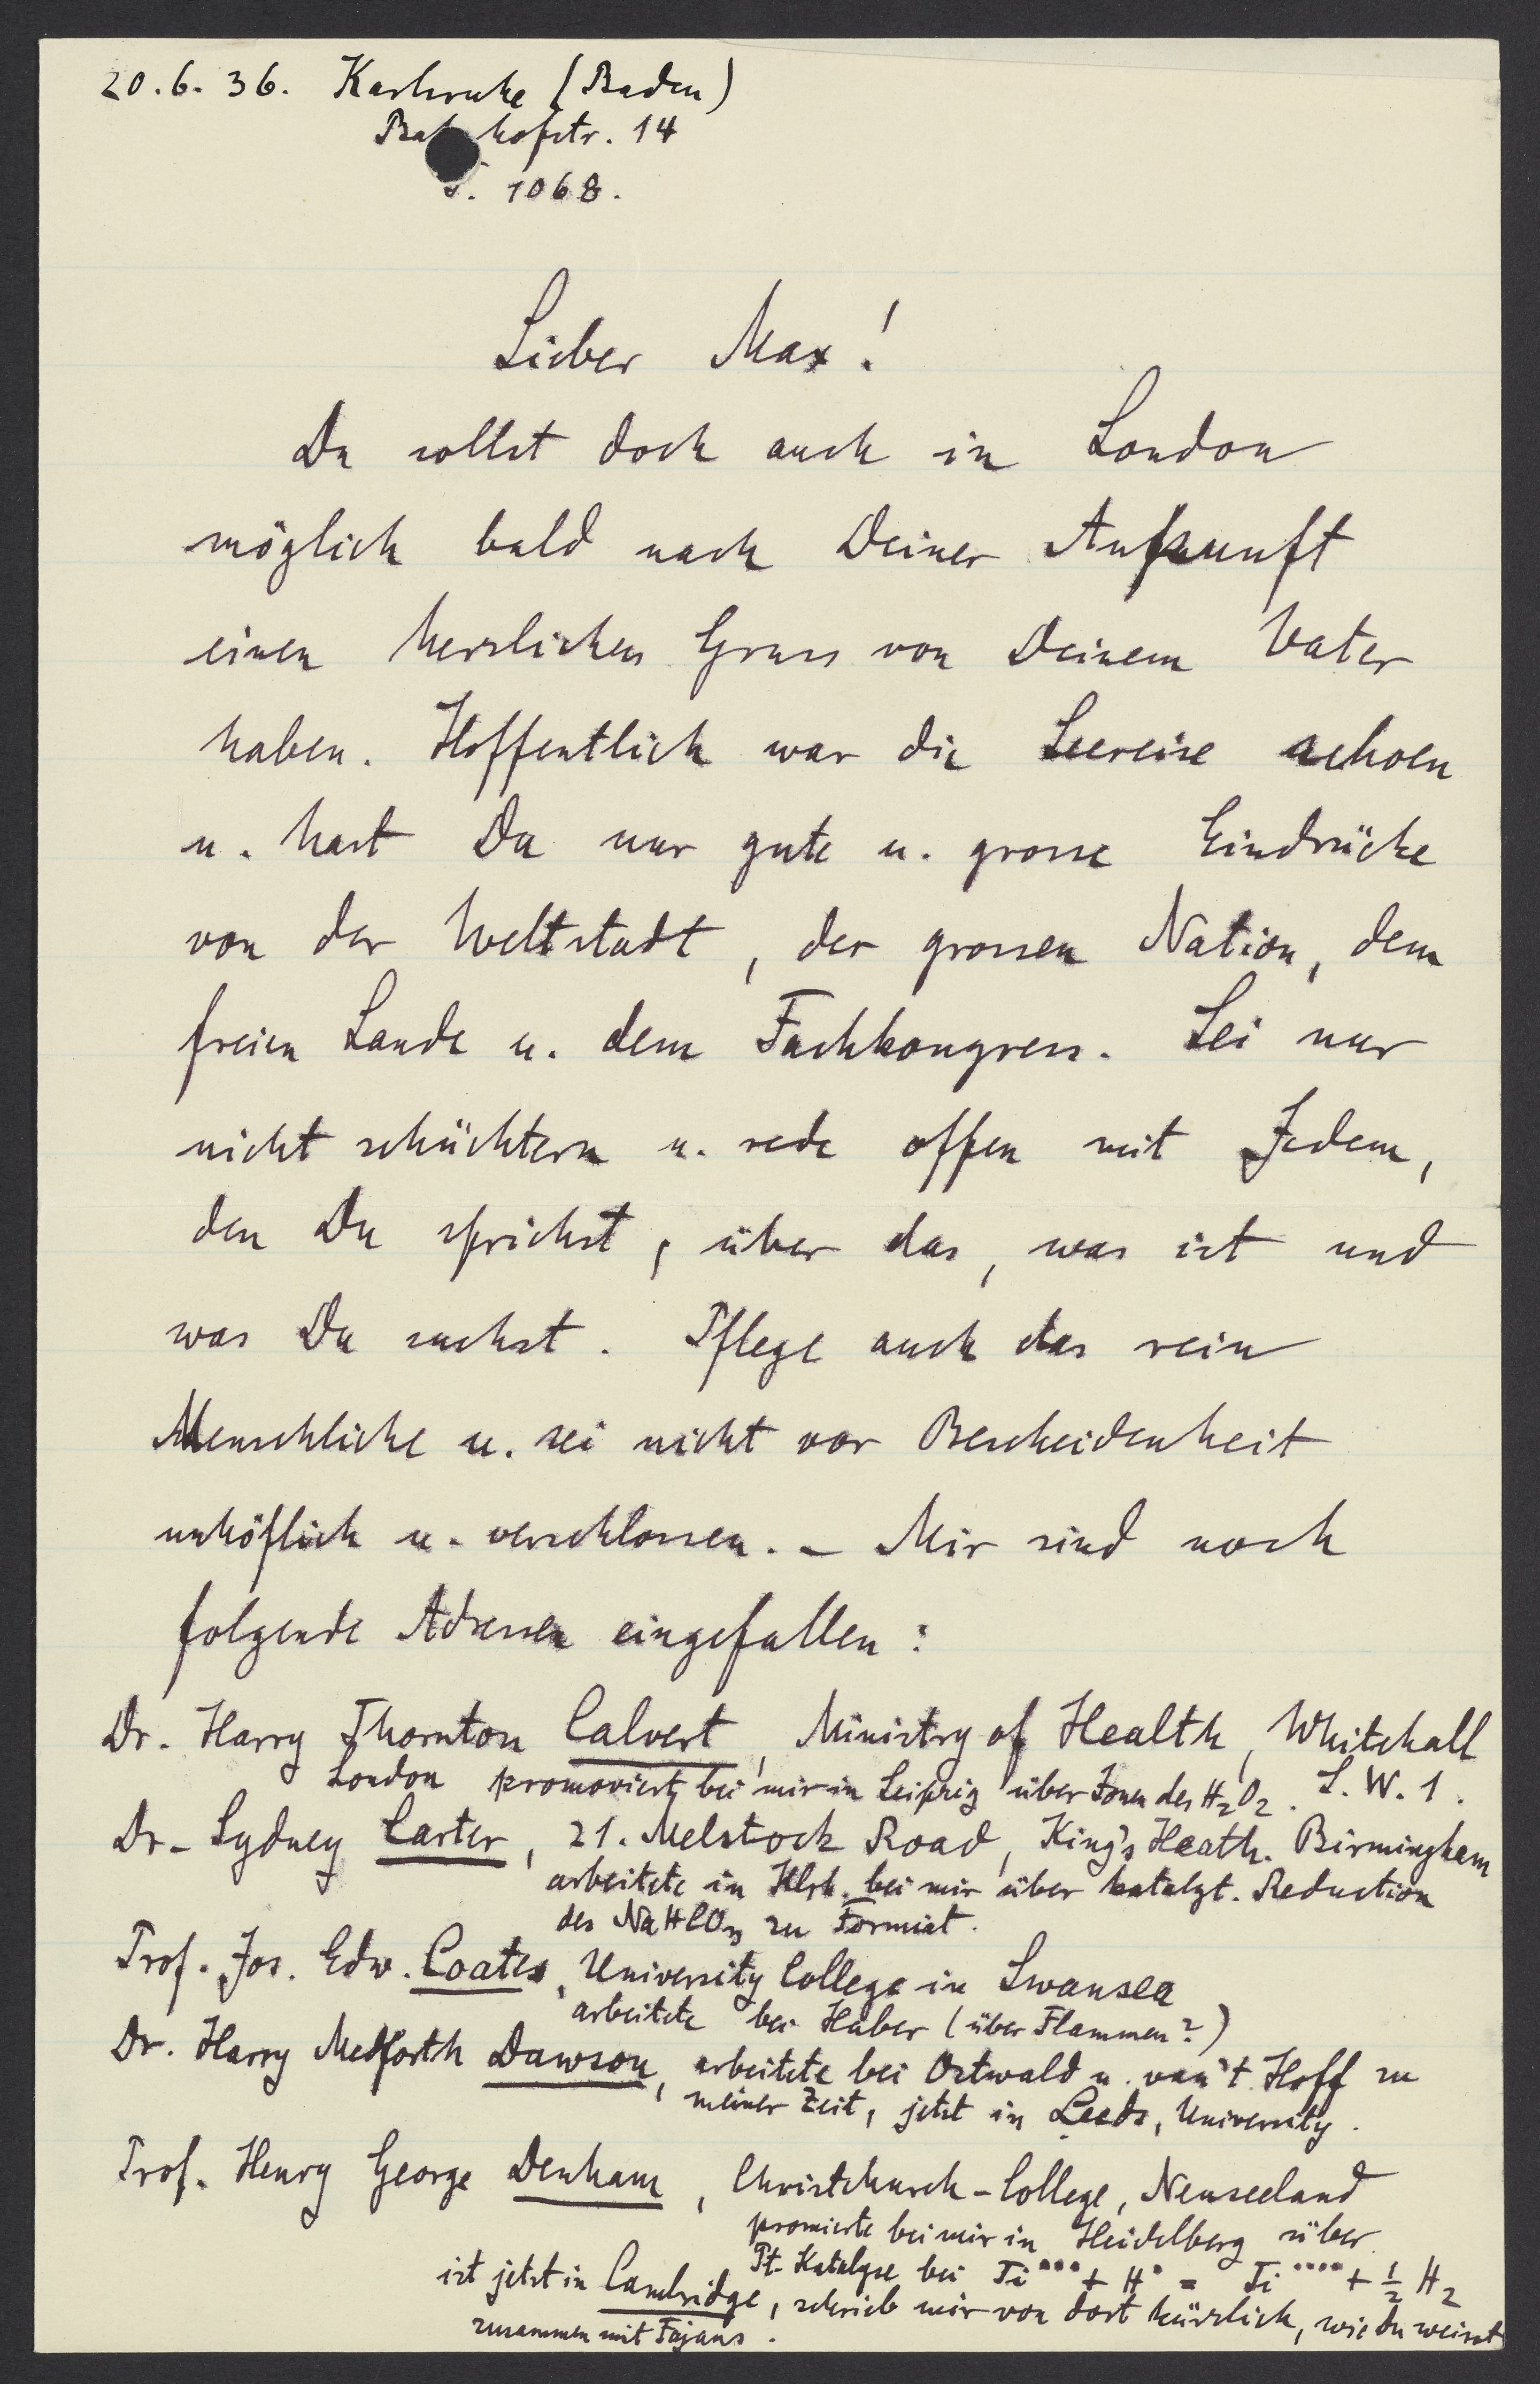 20.6.36. Karlsruhe (Baden)
Bahnhofstr. 14
T. 1068.
Lieber Max!
Du sollst doch auch in London
möglich bald nach Deiner Ankunft
einen herzlichen Gruss von Deinem Vater
haben. Hoffentlich war die Seereise schoen
u. hast Du nur gute u. grosse Eindrücke
von der Weltstadt, der grossen Nation, dem
freien Lande u. dem Fachkongress. Sei nur
nicht schüchtern u. rede offen mit Jedem,
den Du sprichst, über das, was ist und
was Du suchst. Pflege auch das rein
Menschliche u. sei nicht vor Bescheidenheit
unhöflich u. verschlossen. – Mir sind noch
folgende Adressen eingefallen:
Dr. Harry Thornton Calvert, Ministry of Health, Whitehall
London promoviert bei mir in Leipzig über Ionen des H₂O₂. S.W.1.
Dr. Sydney Carter, 21. Melstock Road, King's Heath. Birmingham
arbeitete in Klrh. bei mir über katalyt. Reduction
des NaHCO₃ zu Formiat.
Prof. Jos. Edw. Coates, University College in Swansea
arbeitete bei Haber (über Flammen?)
Dr. Harry Medforth Dawson, arbeitete bei Ostwald u. van't Hoff zu
meiner Zeit, jetzt in Leeds, University.
Prof. Henry George Denham, Christchurch-College, Neuseeland
promierte bei mir in Heidelberg über
Pt-Katalyse bei Ti˙˙˙ + H˙ = Ti˙˙˙˙ + ½ H₂
ist jetzt in Cambridge, schrieb mir von dort kürzlich, wie Du weisst
zusammen mit Fajans.